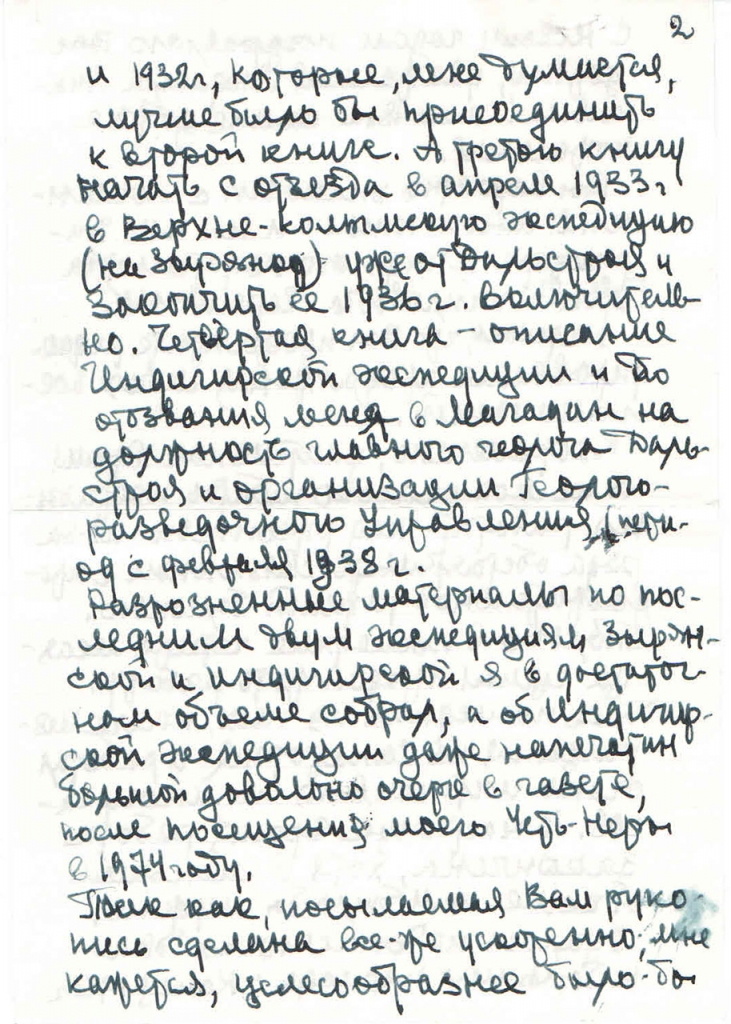 2
и 1932г, которые, мне думается,
лучше было бы присоединить
к второй книге. А третью книгу
начать с отъезда в апреле 1933г
в Верхне-колымскую экспедицию
(на Зырянов) уже от Дальстроя и
закончить её 1936г включитель-
но. Четвёртая книга - описание
Индигирской экспедиции и до
отозвания меня в Магадан на
должность главного геолога Даль-
строя и организации Геолого-
разведочного Управления, пери-
од с февраля 1938г
Разрозненные материалы по пос-
ледним двум экспедициям, Зырян-
ской и индигирской я в достаточ-
ном объеме собрал, а об Индигир-
ской экспедиции даже напечатан
большой довольно очерк в газете,
после посещения моего Усть-Неры
в 1974 году.
Так как, посылаемая Вам руко-
пись сделана все-же ускоренно, мне
кажется, целесообразнее было-бы